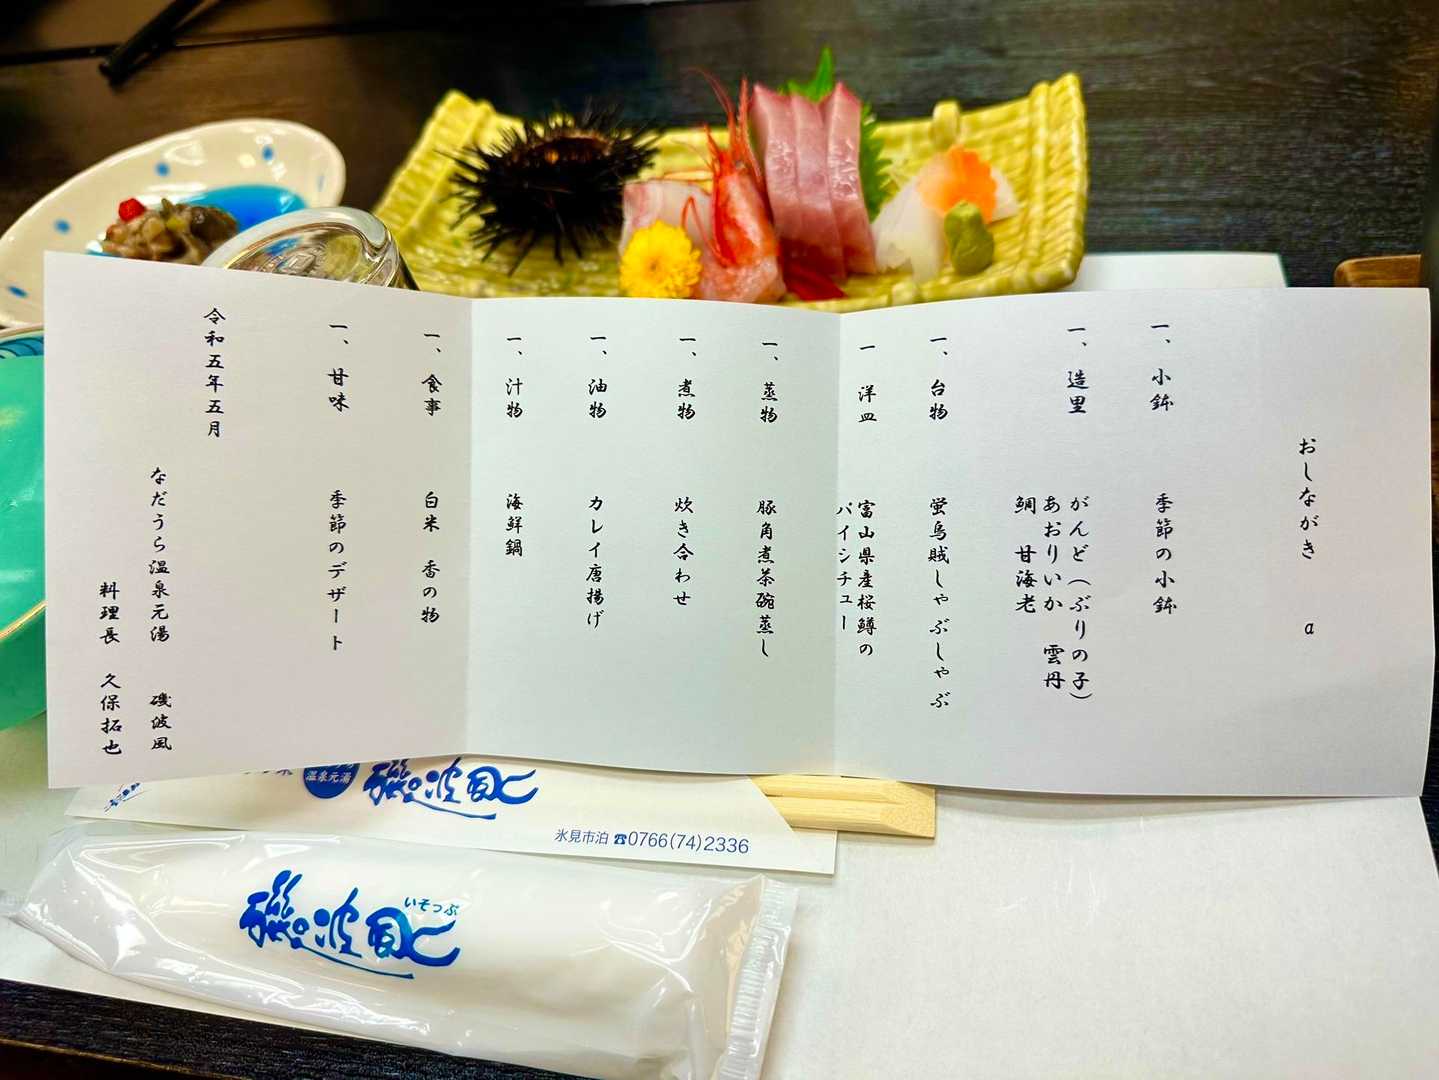 おしながき a
一、小鉢 季節の小鉢
一、造里 がんど（ぶりの子）
あおりいか 雲丹
鯛 甘海老
一、台物 蛍烏賊しゃぶしゃぶ
一 洋皿 富山県産桜鱒の
パイシチュー
一、蒸物 豚角煮茶碗蒸し
一、煮物 炊き合わせ
一、油物 カレイ唐揚げ
一、汁物 海鮮鍋
一、食事 白米 香の物
一、甘味 季節のデザート
令和五年五月
なだうら温泉元湯 磯波風
料理長 久保拓也
温泉元湯
磯波風
氷見市泊 ☎0766(74)2336
いそっぷ
磯波風